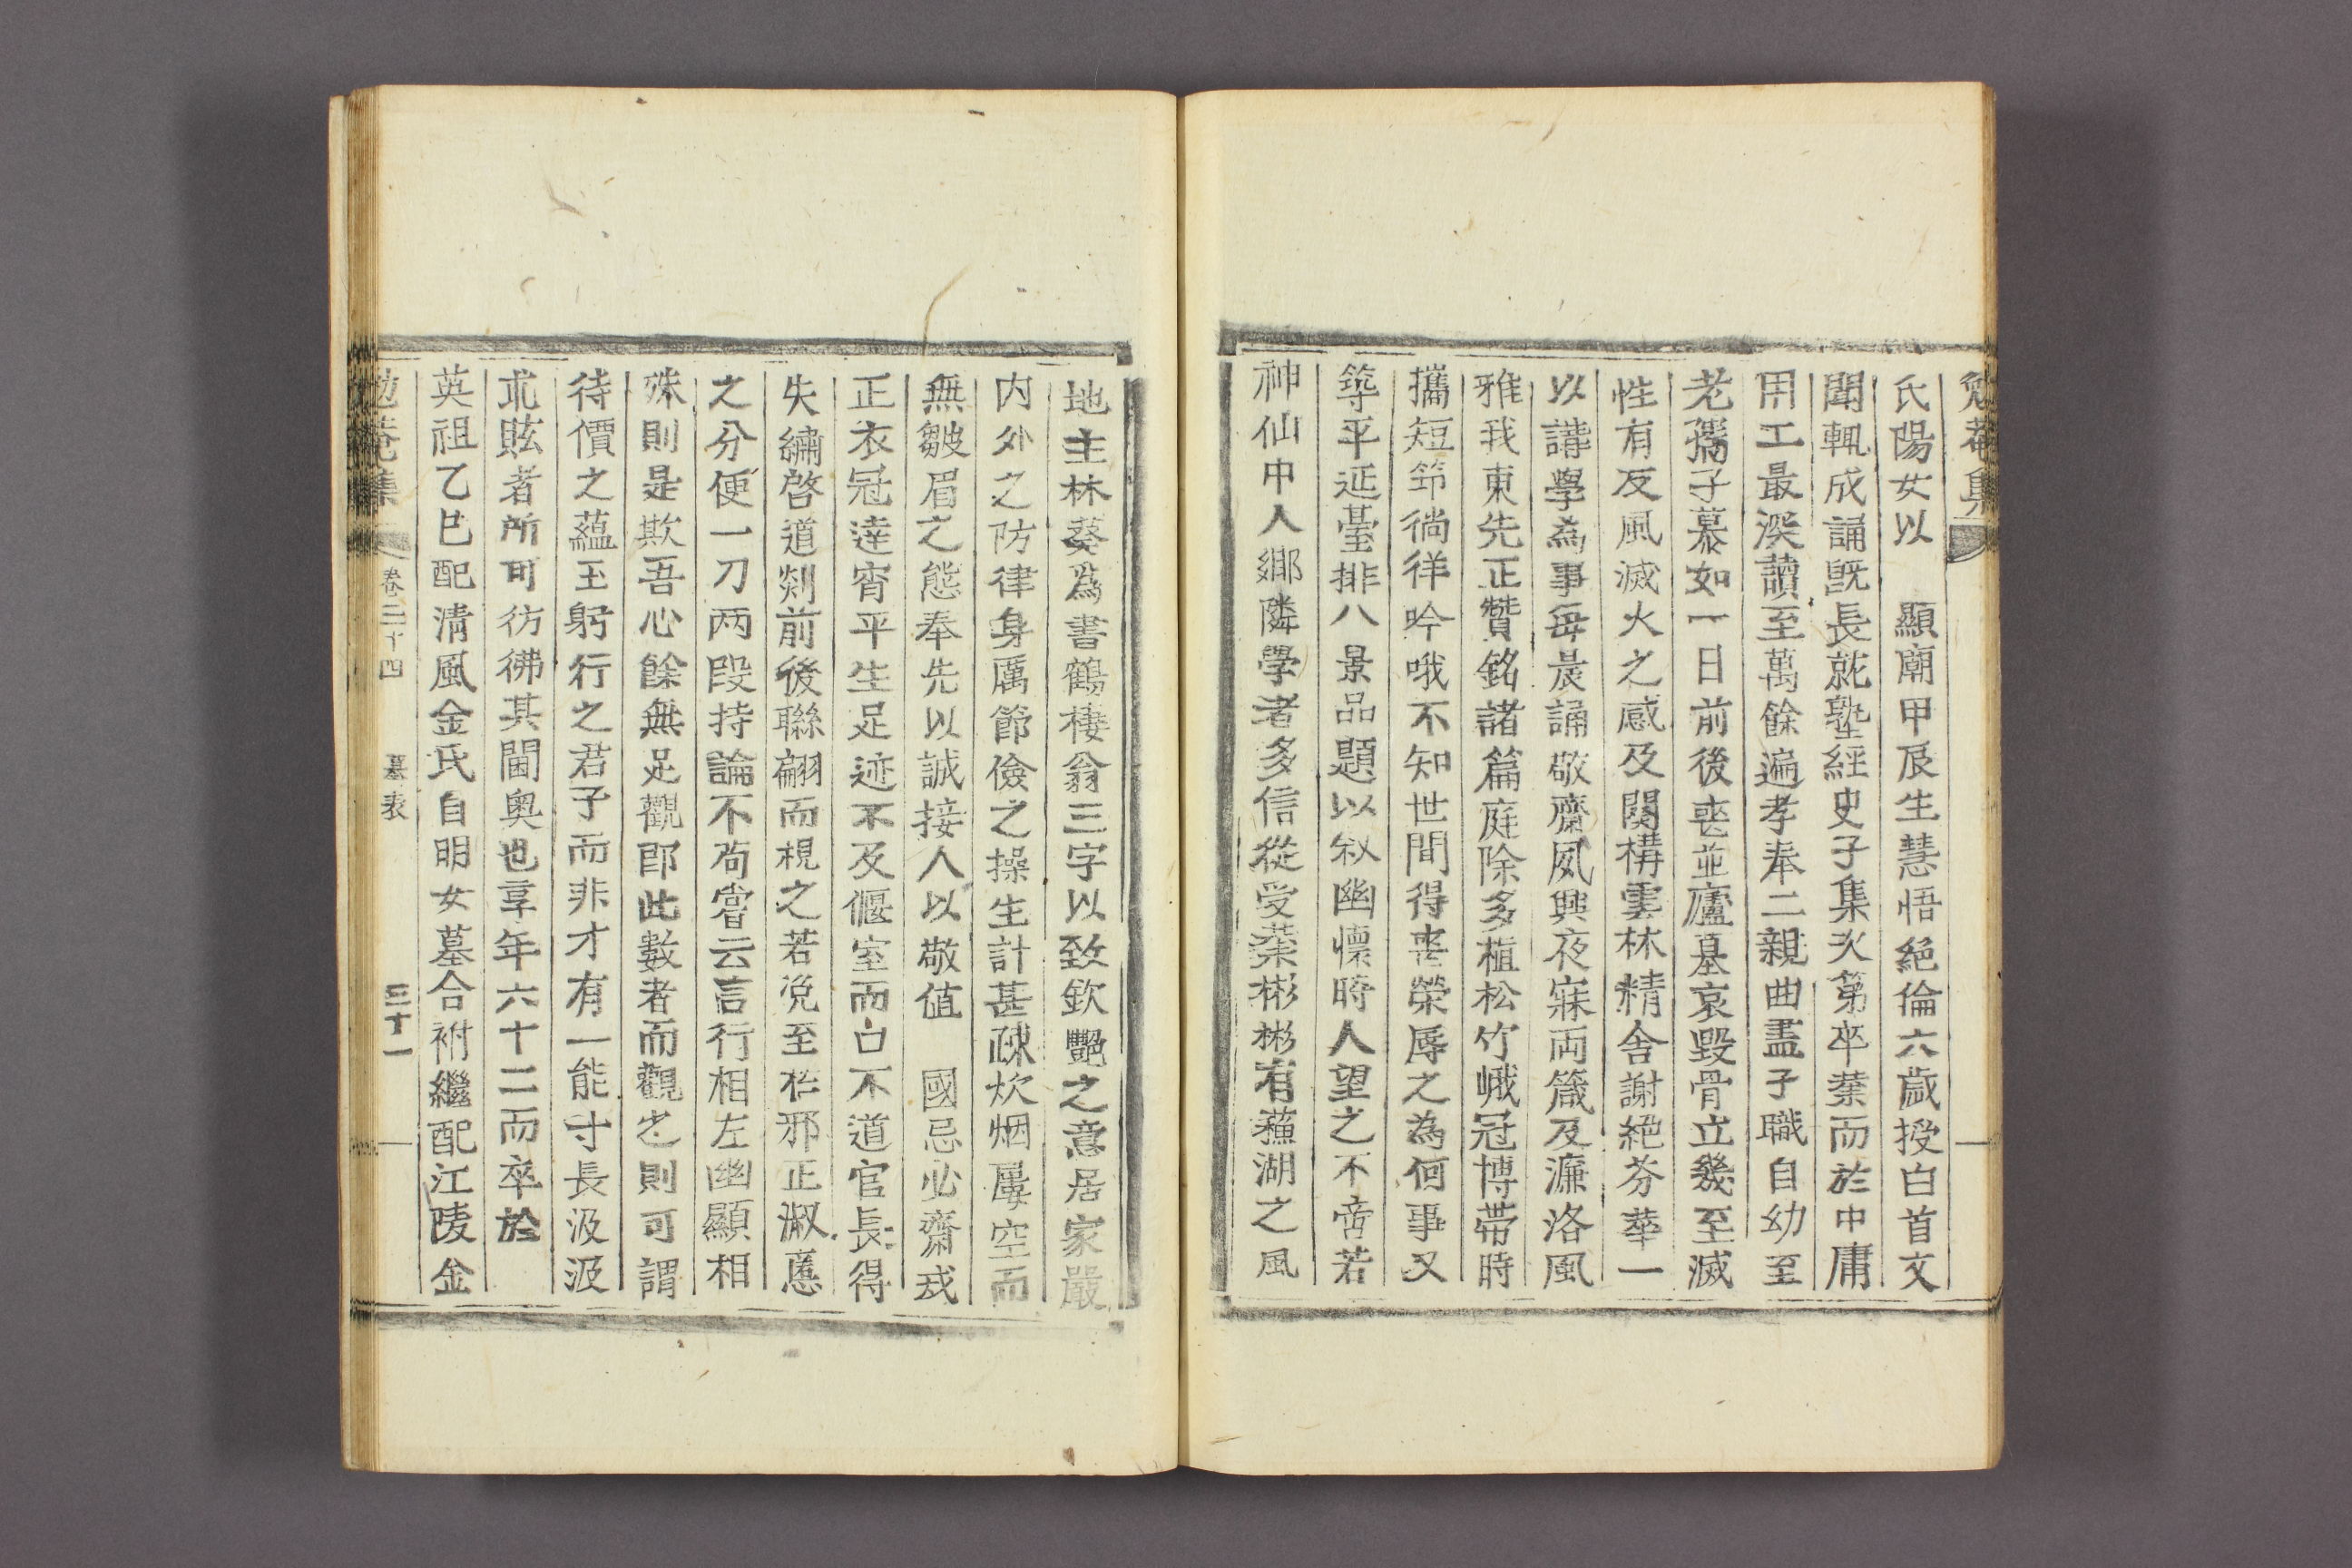 勉菴集
氏陽女以　顯廟甲辰生慧悟絕倫六歲授白首文
聞輒成誦旣長就塾經史子集次第卒業而於中庸
用工最深讀至萬餘遍孝奉二親曲盡子職自幼至
老孺子慕如一日前後喪並廬墓哀毀骨立幾至滅
性有反風滅火之感及闋構雲林精舍謝絕芬華一
以講學爲事每晨誦敬齋夙興夜寐両箴及濂洛風
雅我東先正贊銘諸篇庭除多植松竹峨冠博帶時
攜短笻徜徉吟哦不知世間得喪榮辱之為何事又
築平延臺排八景品題以叙幽懷時人望之不啻若
神仙中人鄉隣學者多信從受業彬彬有蘓湖之風
地主林葵爲書鶴棲翁三字以致欽艷之意居家嚴
内外之防律身厲節儉之操生計甚疎炊烟屢空而
無皺眉之態奉先以誠接人以敬値　國忌必齋戒
正衣冠達宵平生足迹不及偃室而口不道官長得
失繡啓道剡前後聯翩而視之若浼至於邪正淑慝
之分便一刀两段持論不苟嘗云言行相左幽顯相
殊則是欺吾心餘無足觀卽此數者而觀之則可謂
待價之蘊玉躬行之君子而非才有一能寸長汲汲
求眩者所可彷彿其閫奧也享年六十二而卒於
英祖乙巳配淸風金氏自明女墓合祔繼配江陵金
勉菴集　卷三十四　墓表　三十一